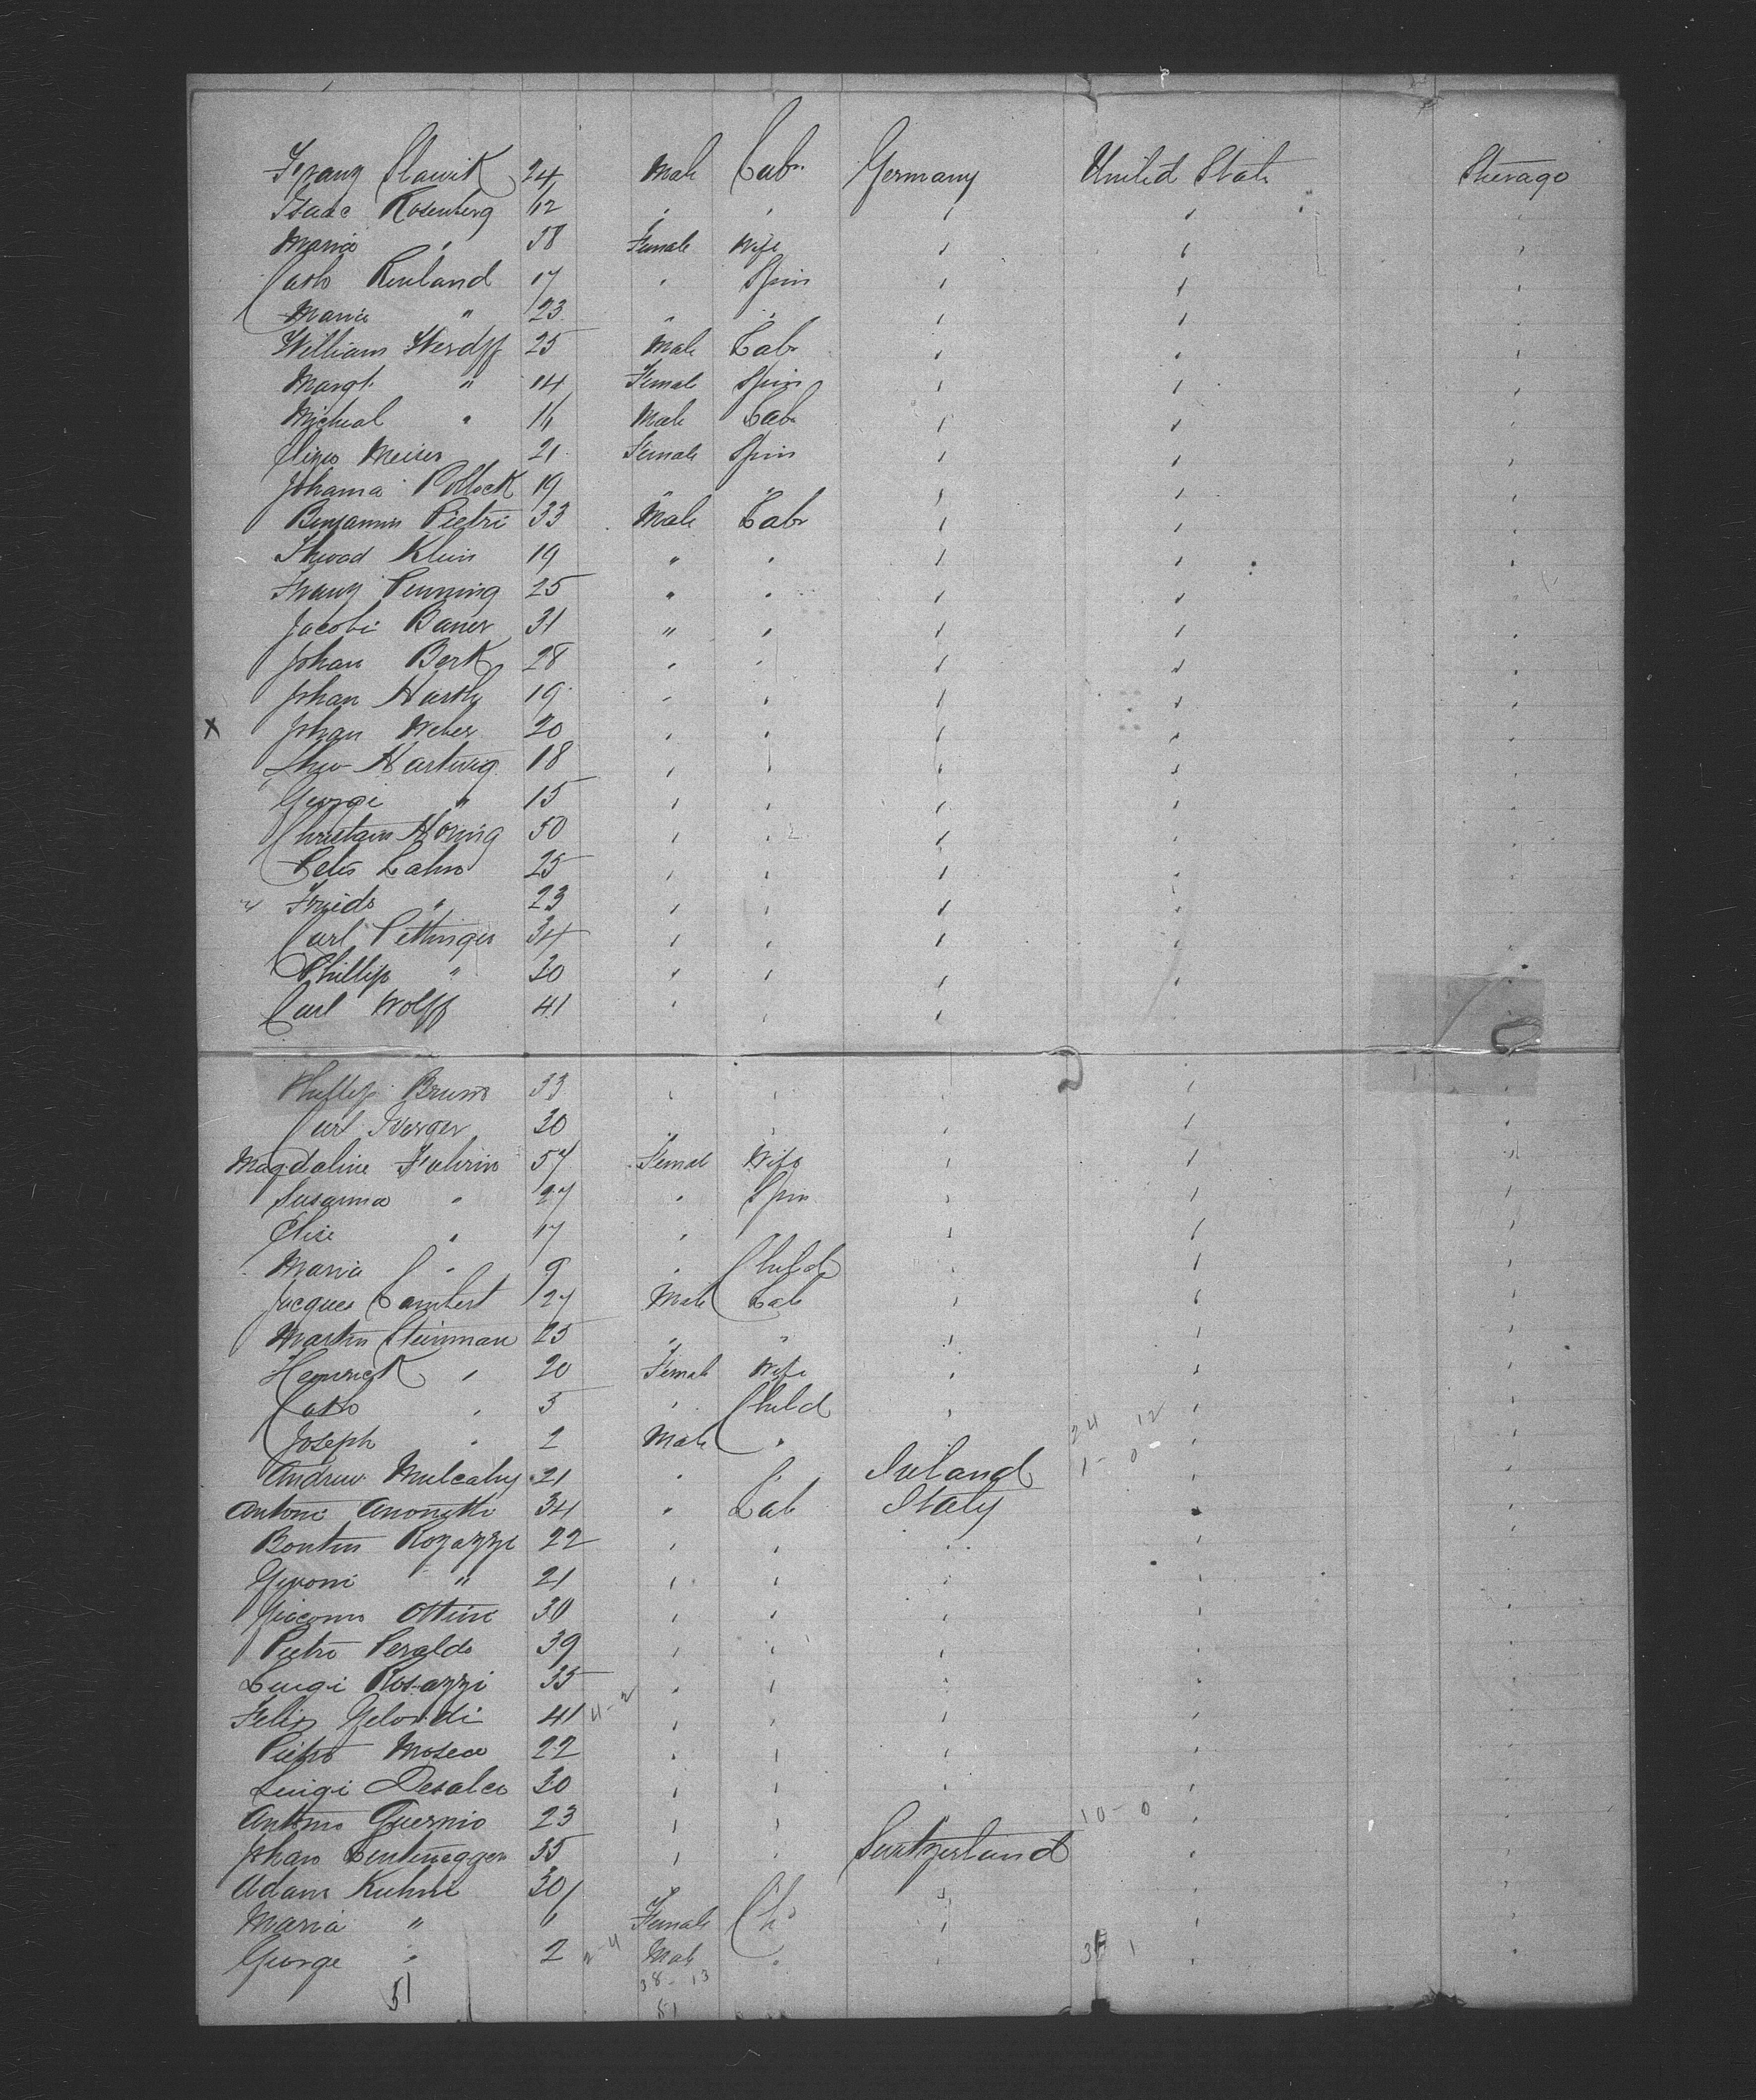 Franz Slawik 24 Male Labr Germany United State Steerage
Isaac Rosenberg 12 " " " " "
Maria " 58 Female Wife " " "
Cath Reuland 17 " Spin " " "
Maria " 23 " " " " "
William Werdff 25 Male Labr " " "
Margt " 14 Female Spin " " "
Micheal " 16 Male Labr " " "
Meiser 21 Female Spin " " "
Johanna Pollock 19 " " " " "
Benjamin Pietri 33 Male Labr " " "
Klein 19 " " " " "
Franz Penning 25 " " " " "
Jacobi Bauer 31 " " " " "
Johan Berk 28 " " " " "
Johan Harth 19 " " " " "
X Johan Weber 20 " " " " "
Theo Hartwig 18 " " " " "
George " 15 " " " " "
Christian Horing 50 " " " " "
Peter Lahn 25 " " " " "
Frieds " 23 " " " " "
Carl Pettinger 34 " " " " "
Phillip " 30 " " " " "
Carl Wolff 41 " " "
Phillip Bruns 33 " " " " "
Carl 30 " " " " "
Magdaline Fuhrin 57 Femal Wife " " "
Susanna " 27 " Spin " " "
Elise " 17 " " " "
Maria " 9 " Child " " "
Jacques Lambert 27 Male Lab " " "
Martin Steinman 25 " " " " "
Henriek " 20 Female Wife " " "
Cath " 3 " Child " 24 12 " "
Joseph " 2 Male " " "
Andrew Mulcahy 21 " " Ireland 1 - 0 " "
Antoni Anonetti 34 " Lab Italy " "
Bontin Rozazzi 22 " " " " "
Geroni " 21 " " " " "
Giacomo Ottini 30 " " " " "
Pietro Peraldo 39 " " " " "
Luigi Rosazzi 35 " " " " "
Felix Gelondi 41 4-2 " " " " "
Pietro Mosca 22 " " " " "
Luigi Desalco 30 " " " " "
Antonio Guernio 23 " " 10-0 " "
Johan Lentenegger 35 " " Switzerland " "
Adam Kuhni 30 " " " "
Maria " 6 Female Ch " " "
George " 2 2-4 Male " " 3 1 " "
51 38-13
51